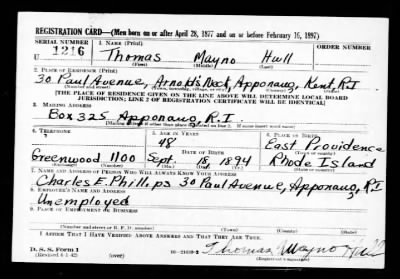 REGISTRATION CARD—(Men born on or after April 28, 1877 and on or before February 16, 1897)
SERIAL NUMBER 1. NAME (Print) ORDER NUMBER
1216 Thomas Mayno Hull
(First) (Middle) (Last)
2. PLACE OF RESIDENCE (Print)
30 Paul Avenue, Arnold's Neck, Apponaug, Kent R.I
(Number and street) (Town, township, village, or city) (County) (State)
[THE PLACE OF RESIDENCE GIVEN ON THE LINE ABOVE WILL DETERMINE LOCAL BOARD
JURISDICTION; LINE 2 OF REGISTRATION CERTIFICATE WILL BE IDENTICAL]
3. MAILING ADDRESS
Box 325 Apponaug, R.I.
[Mailing address if other than place indicated on line 2. If same insert word same]
4. TELEPHONE 5. AGE IN YEARS 6. PLACE OF BIRTH
48 East Providence
DATE OF BIRTH (Town or county)
Greenwood 1100 Sept. 18, 1894 Rhode Island
(Exchange) (Number) (Mo.) (Day) (Yr.) (State or country)
7. NAME AND ADDRESS OF PERSON WHO WILL ALWAYS KNOW YOUR ADDRESS
Charles E. Phillips 30 Paul Avenue, Apponaug, R.I
8. EMPLOYER'S NAME AND ADDRESS
Unemployed
9. PLACE OF EMPLOYMENT OR BUSINESS
(Number and street or R. F. D. number) (Town) (County) (State)
I AFFIRM THAT I HAVE VERIFIED ABOVE ANSWERS AND THAT THEY ARE TRUE.
D. S. S. Form 1 Thomas Mayno Hull
(Revised 4-1-42) (over)